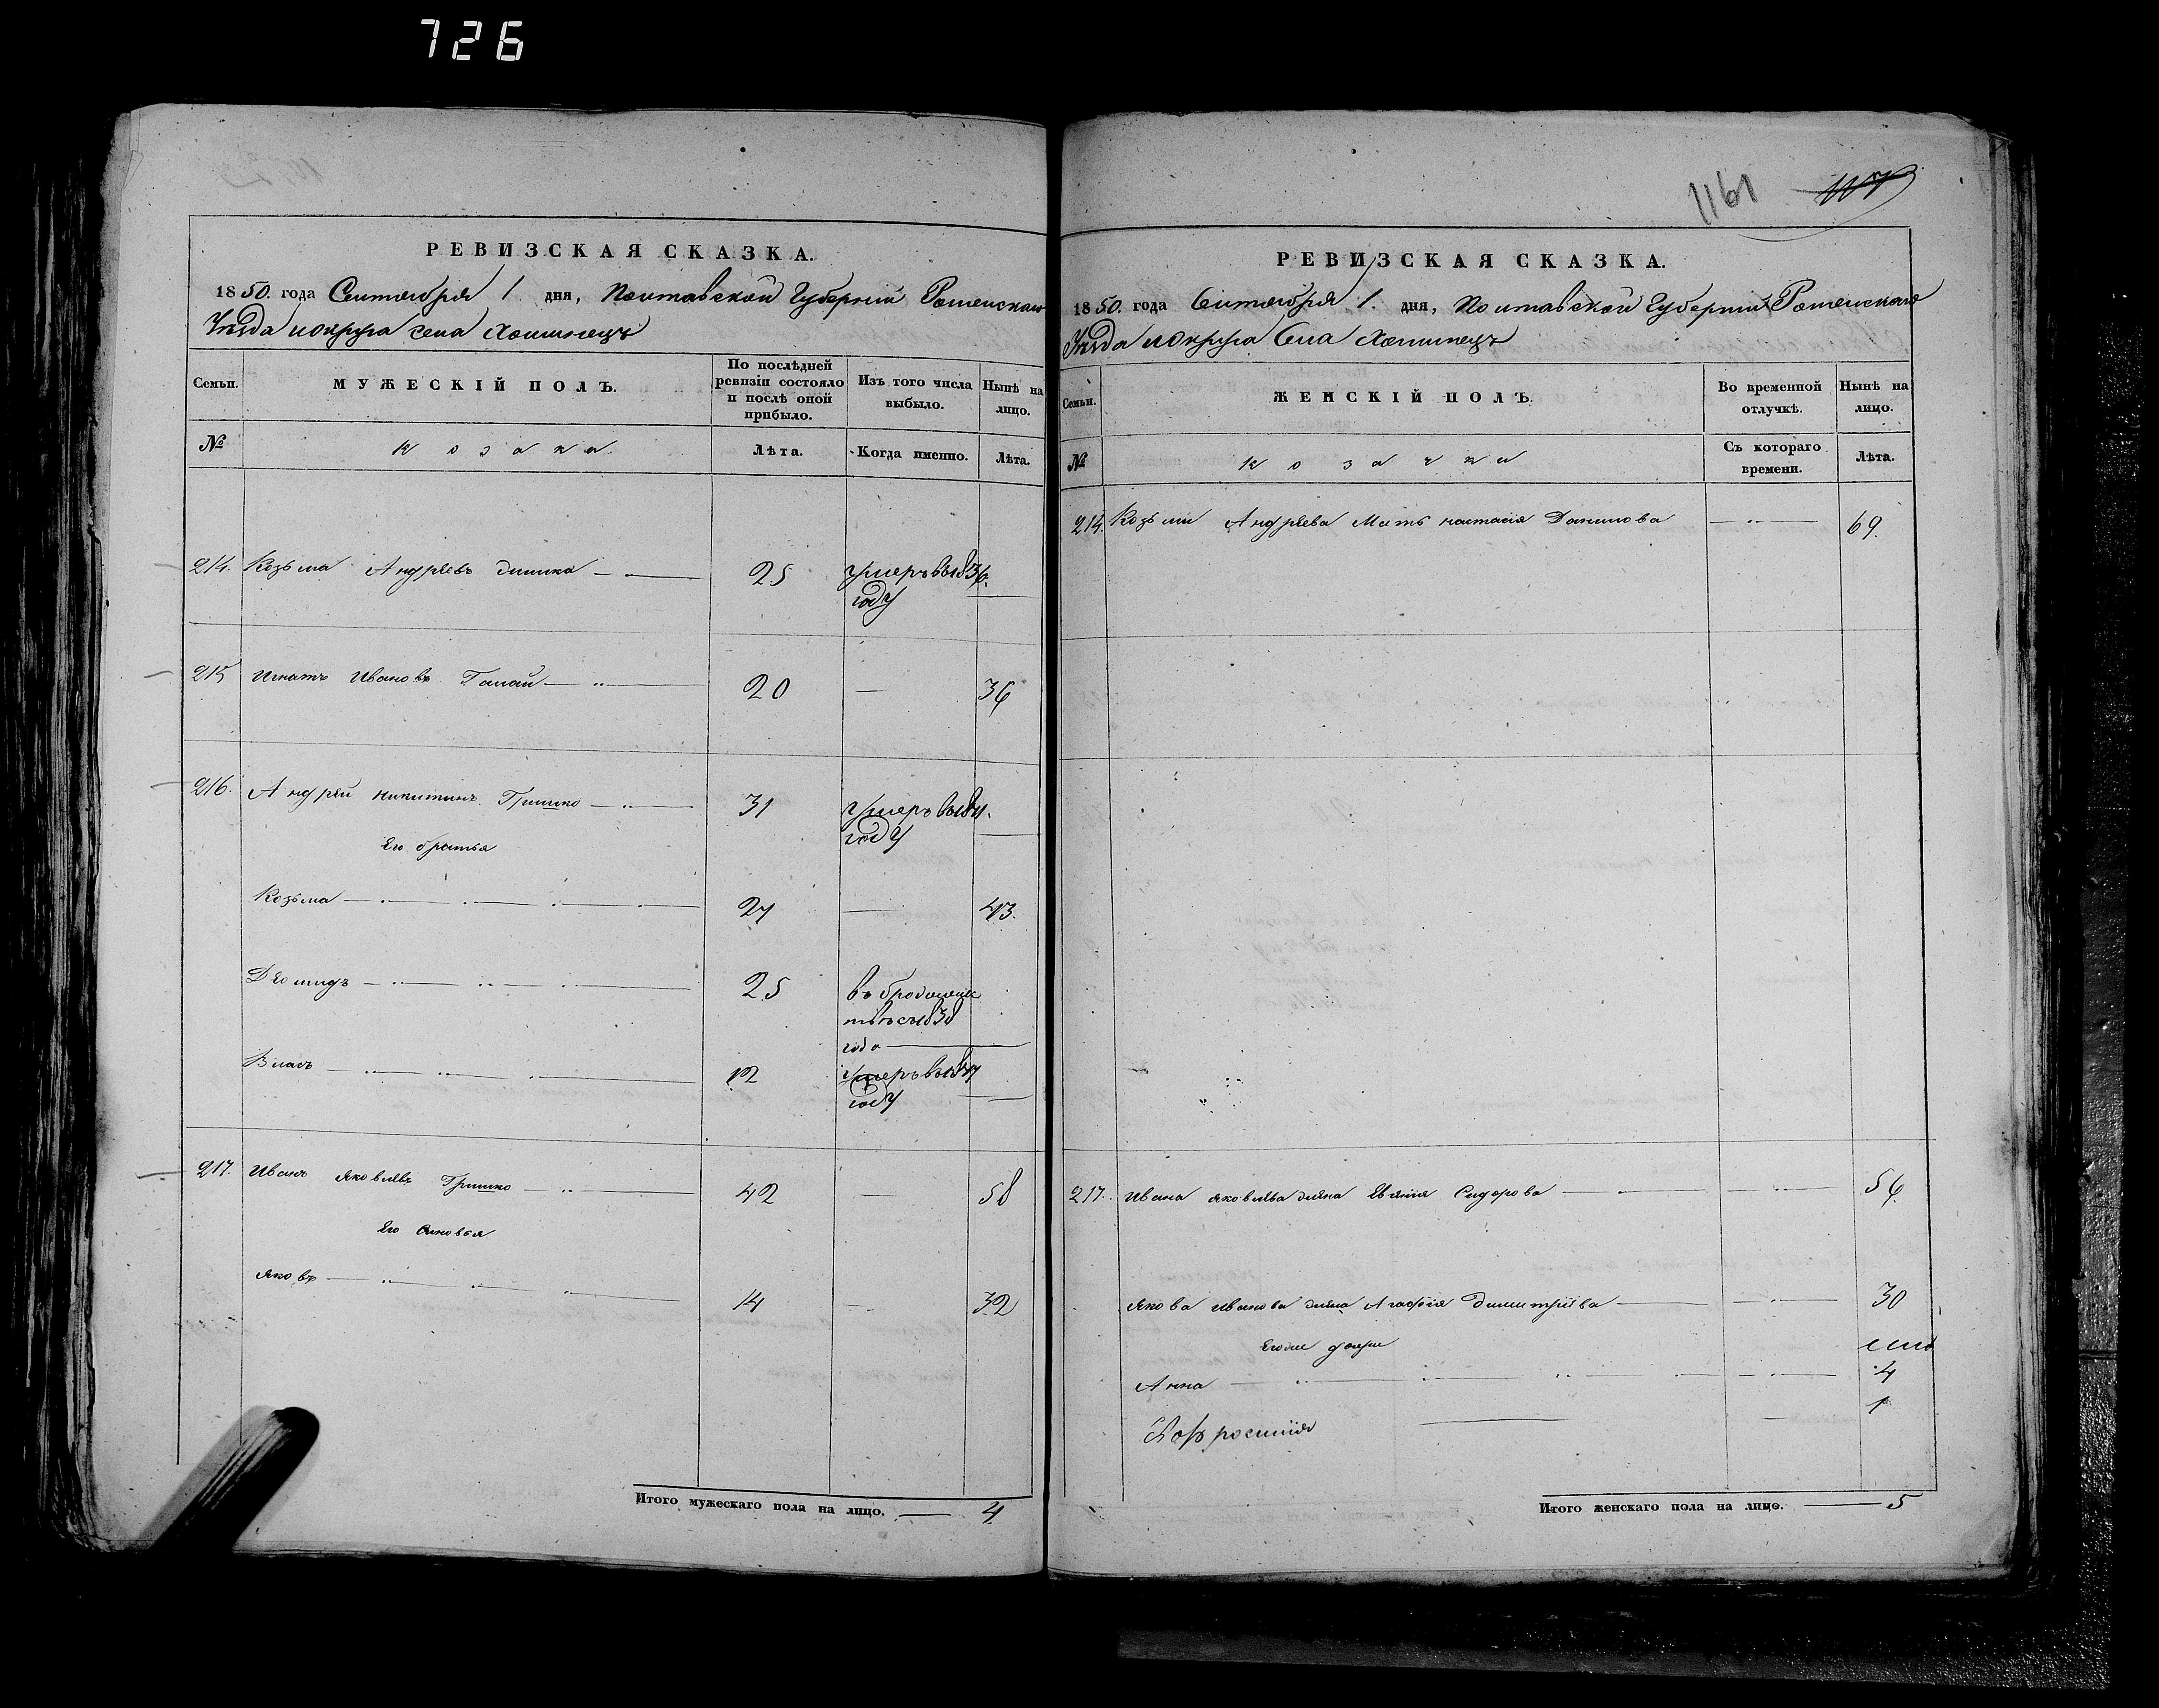 726
1161
РЕВИЗСКАЯ СКАЗКА.
1850. года Сентября 1 дня, Полтавской Губернии Роменскаго
Уезда и округа села Хоминецъ
Семьи.
МУЖЕСКІЙ ПОЛЪ.
По послѣдней ревизіи состояло и послѣ оной прибыло.
Изъ того числа выбыло.
Нынѣ на лицо.
№
козаки
Лѣта.
Когда именно.
Лѣта.
214. Козьма Андреевъ 25 умеръ в 1836.
году
215 Игнатъ Ивановъ Галай 20 — 36
216. Андрей Никитинъ Гришко 31 умеръ в
году
Его братья
Козьма 27 — 43.
Деомидъ 25 въ бродяжес
твѣ съ 1838
года
Власъ 12 умеръ в
году
217. Иванъ Яковлевъ Гришко 42 — 58
Его сыновья
Яковъ 14 — 32
Итого мужескаго пола на лицо. — 4
РЕВИЗСКАЯ СКАЗКА.
1850. года Сентября 1. дня, Полтавской Губернии Роменскаго
Уезда и округа Села Хоминецъ
Семьи.
ЖЕНСКІЙ ПОЛЪ.
Во временной отлучкѣ.
Нынѣ на лицо.
№
козачки
Съ котораго времени.
Лѣта.
214. Козьми Андреева Мать Настасія Данилова — 69.
217. Ивана Яковлева жена Сидорова — 56
Якова Иванова жена Агафія Димитріева — 30
Егоже дочери
Анна — 4
Евфросинія — 1
Итого женскаго пола на лицо. — 5